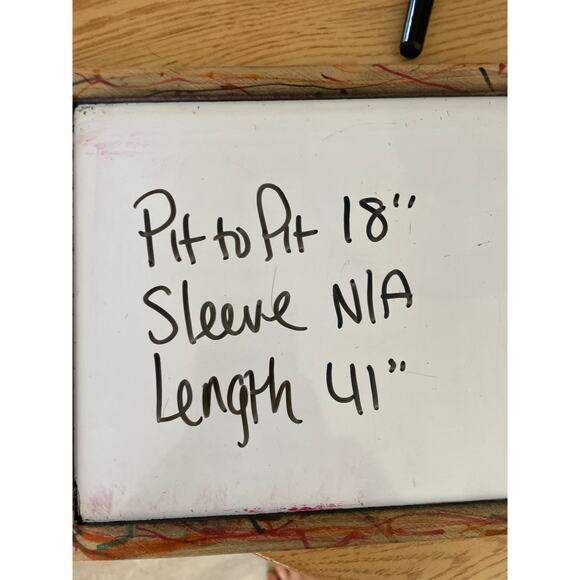 Pit to Pit 18"
Sleeve N/A
Length 41"